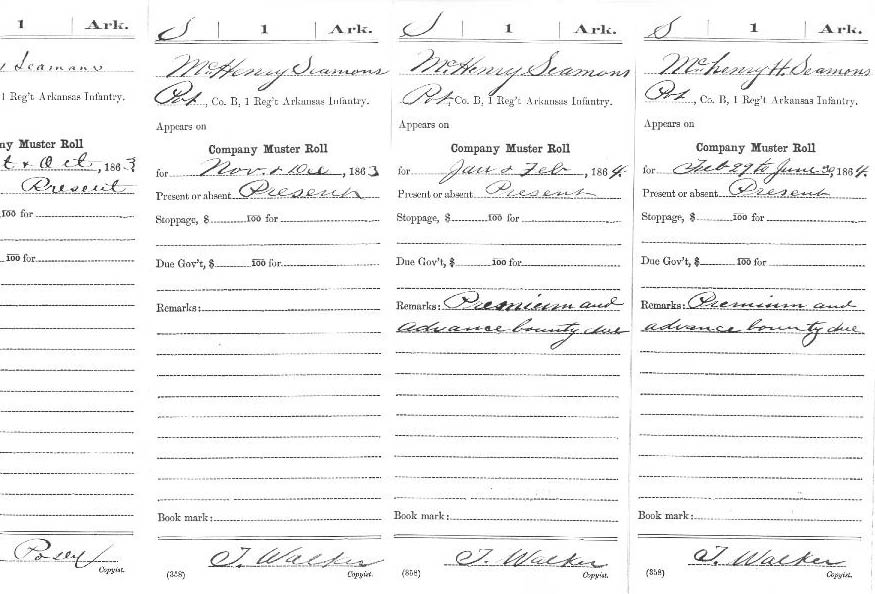 1 Ark.
Seamans
1 Reg't Arkansas Infantry.
ny Muster Roll
t & Oct, 1863
Present
100 for
100 for
Posey
Copyist.
S 1 Ark.
McHenry Seamons
Pvt., Co. B, 1 Reg't Arkansas Infantry.
Appears on
Company Muster Roll
for Nov. & Dec, 1863
Present or absent Present
Stoppage, $ 100 for
Due Gov't, $ 100 for
Remarks:
Book mark:
T. Walker
(358) Copyist.
S 1 Ark.
McHenry Seamons
Pvt, Co. B, 1 Reg't Arkansas Infantry.
Appears on
Company Muster Roll
for Jan & Feb, 1864.
Present or absent Present
Stoppage, $ 100 for
Due Gov't, $ 100 for
Remarks: Premium and
advance bounty due
Book mark:
T. Walker
(358) Copyist.
S 1 Ark.
McHenry H. Seamons
Pvt, Co. B, 1 Reg't Arkansas Infantry.
Appears on
Company Muster Roll
for Feb 29 to June 30, 1864.
Present or absent Present
Stoppage, $ 100 for
Due Gov't, $ 100 for
Remarks: Premium and
advance bounty due
Book mark:
T. Walker
(358) Copyist.